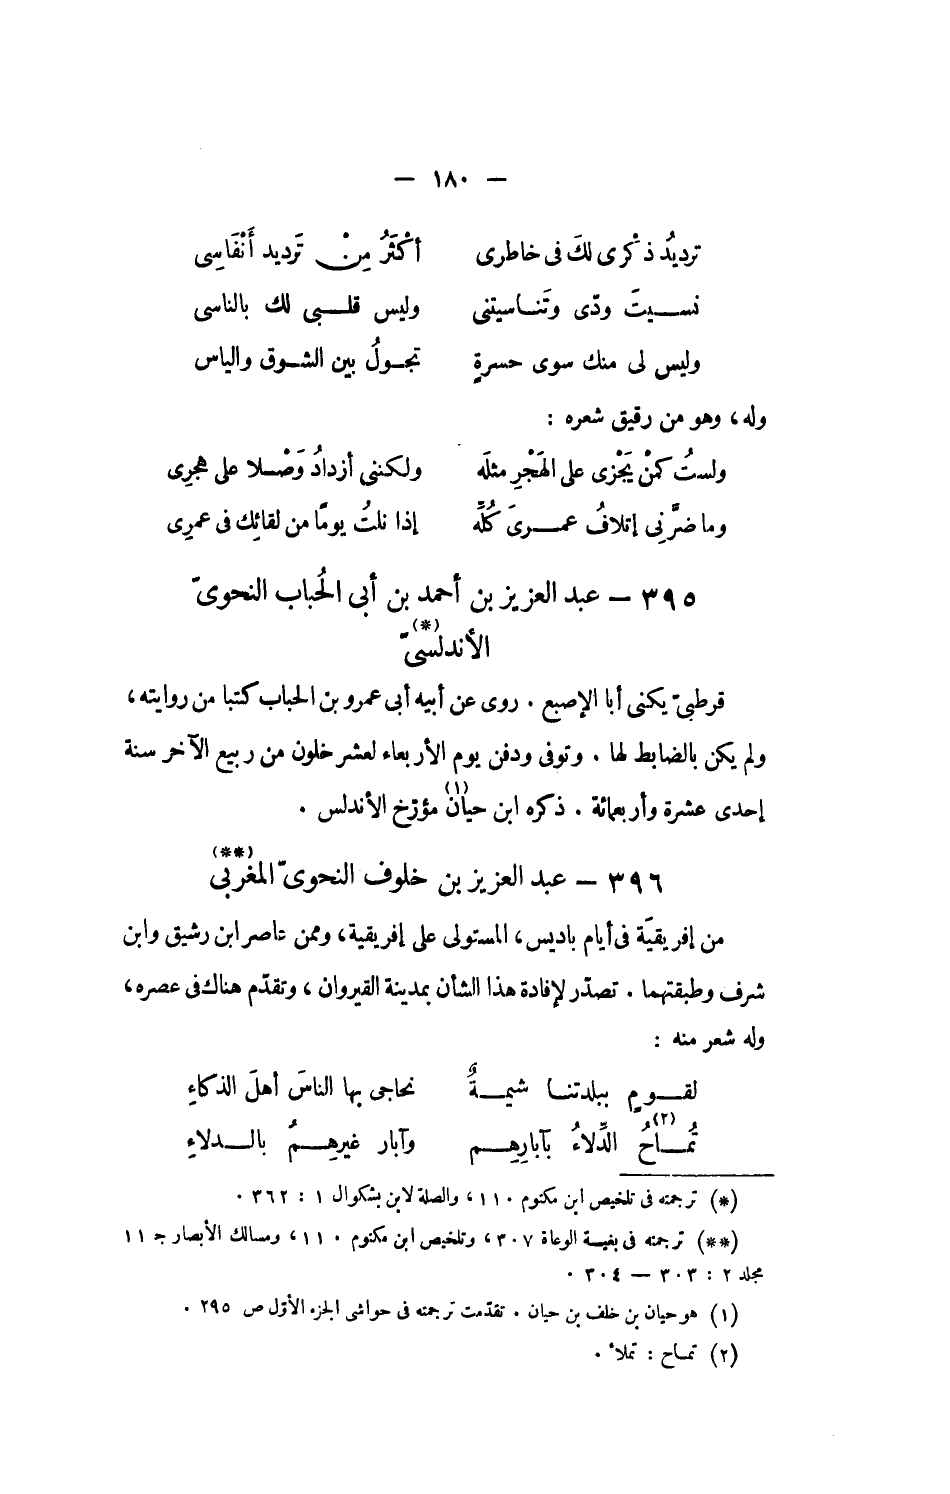 — ١٨٠ —
ترديدُ ذكْرى لكَ فى خاطرى أكْثَرُ مِنْ تَرديد أَنْفَاسِى
نسـيتَ ودّى وتَناسيتنى وليس قلـبى لك بالناسى
وليس لى منك سوى حسرةٍ تجـولُ بين الشـوق والياس
وله، وهو من رقيق شعره :
ولستُ كمنْ يَجْزى على الهَجْرِ مثلَه ولكننى أزدادُ وَصْلا على هجرِى
وما ضرَّنِى إتلافُ عمـرىَ كُلِّه إذا نلتُ يومًا من لقائِك فى عمرِى
٣٩٥ – عبد العزيز بن أحمد بن أبى الحُباب النحوىّ
الأندلسىّ (*)
قرطبىّ يكنى أبا الإصبع . روى عن أبيه أبى عمرو بن الحباب كتبا من روايته،
ولم يكن بالضابط لها . وتوفى ودفن يوم الأربعاء لعشر خلون من ربيع الآخر سنة
إحدى عشرة وأربعمائة . ذكره ابن حيان (١) مؤرّخ الأندلس .
٣٩٦ – عبد العزيز بن خلوف النحوىّ المغربى (**)
من إفريقيّة فى أيام باديس، المستولى على إفريقية، وممن عاصر ابن رشيق وابن
شرف وطبقتهما . تصدّر لإفادة هذا الشأن بمدينة القيروان، وتقدّم هناك فى عصره،
وله شعر منه :
لقـومٍ ببلدتنـا شيمـةٌ نحاجى بها الناسَ أهلَ الذكاءِ
تُمـاحُ (٢) الدِّلاءُ بآبارِهِـم وآبار غيرهِـمُ بالـدلاءِ
(*) ترجمته فى تلخيص ابن مكتوم ١١٠، والصلة لابن بشكوال ١ : ٣٦٢ .
(**) ترجمته فى بغيـة الوعاة ٣٠٧، وتلخيص ابن مكتوم ١١٠، ومسالك الأبصار جـ ١١
مجلد ٢ : ٣٠٣ – ٣٠٤ .
(١) هو حيان بن خلف بن حيان . تقدّمت ترجمته فى حواشى الجزء الأوّل ص ٢٩٥ .
(٢) تمـاح : تملأ .